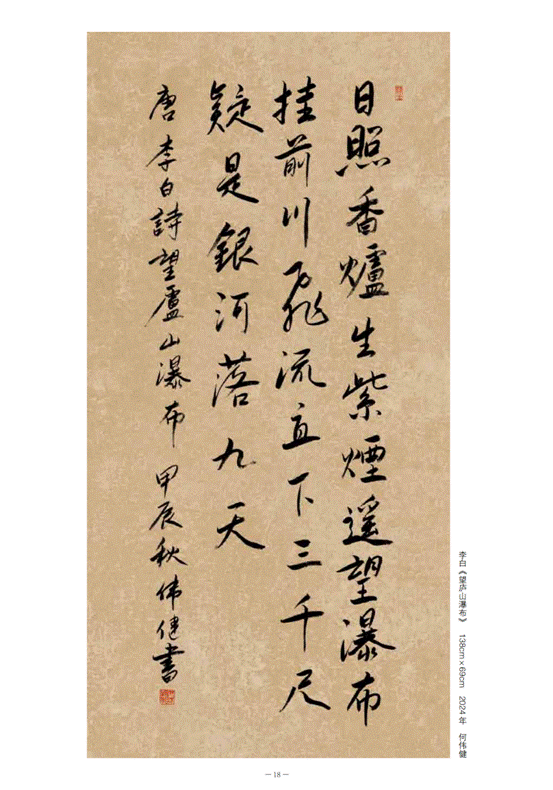 日照香爐生紫煙遥望瀑布
挂前川飛流直下三千尺
疑是銀河落九天
唐李白詩望廬山瀑布 甲辰秋伟健書
李白《望庐山瀑布》 138cm×69cm 2024年 何伟健
－18－